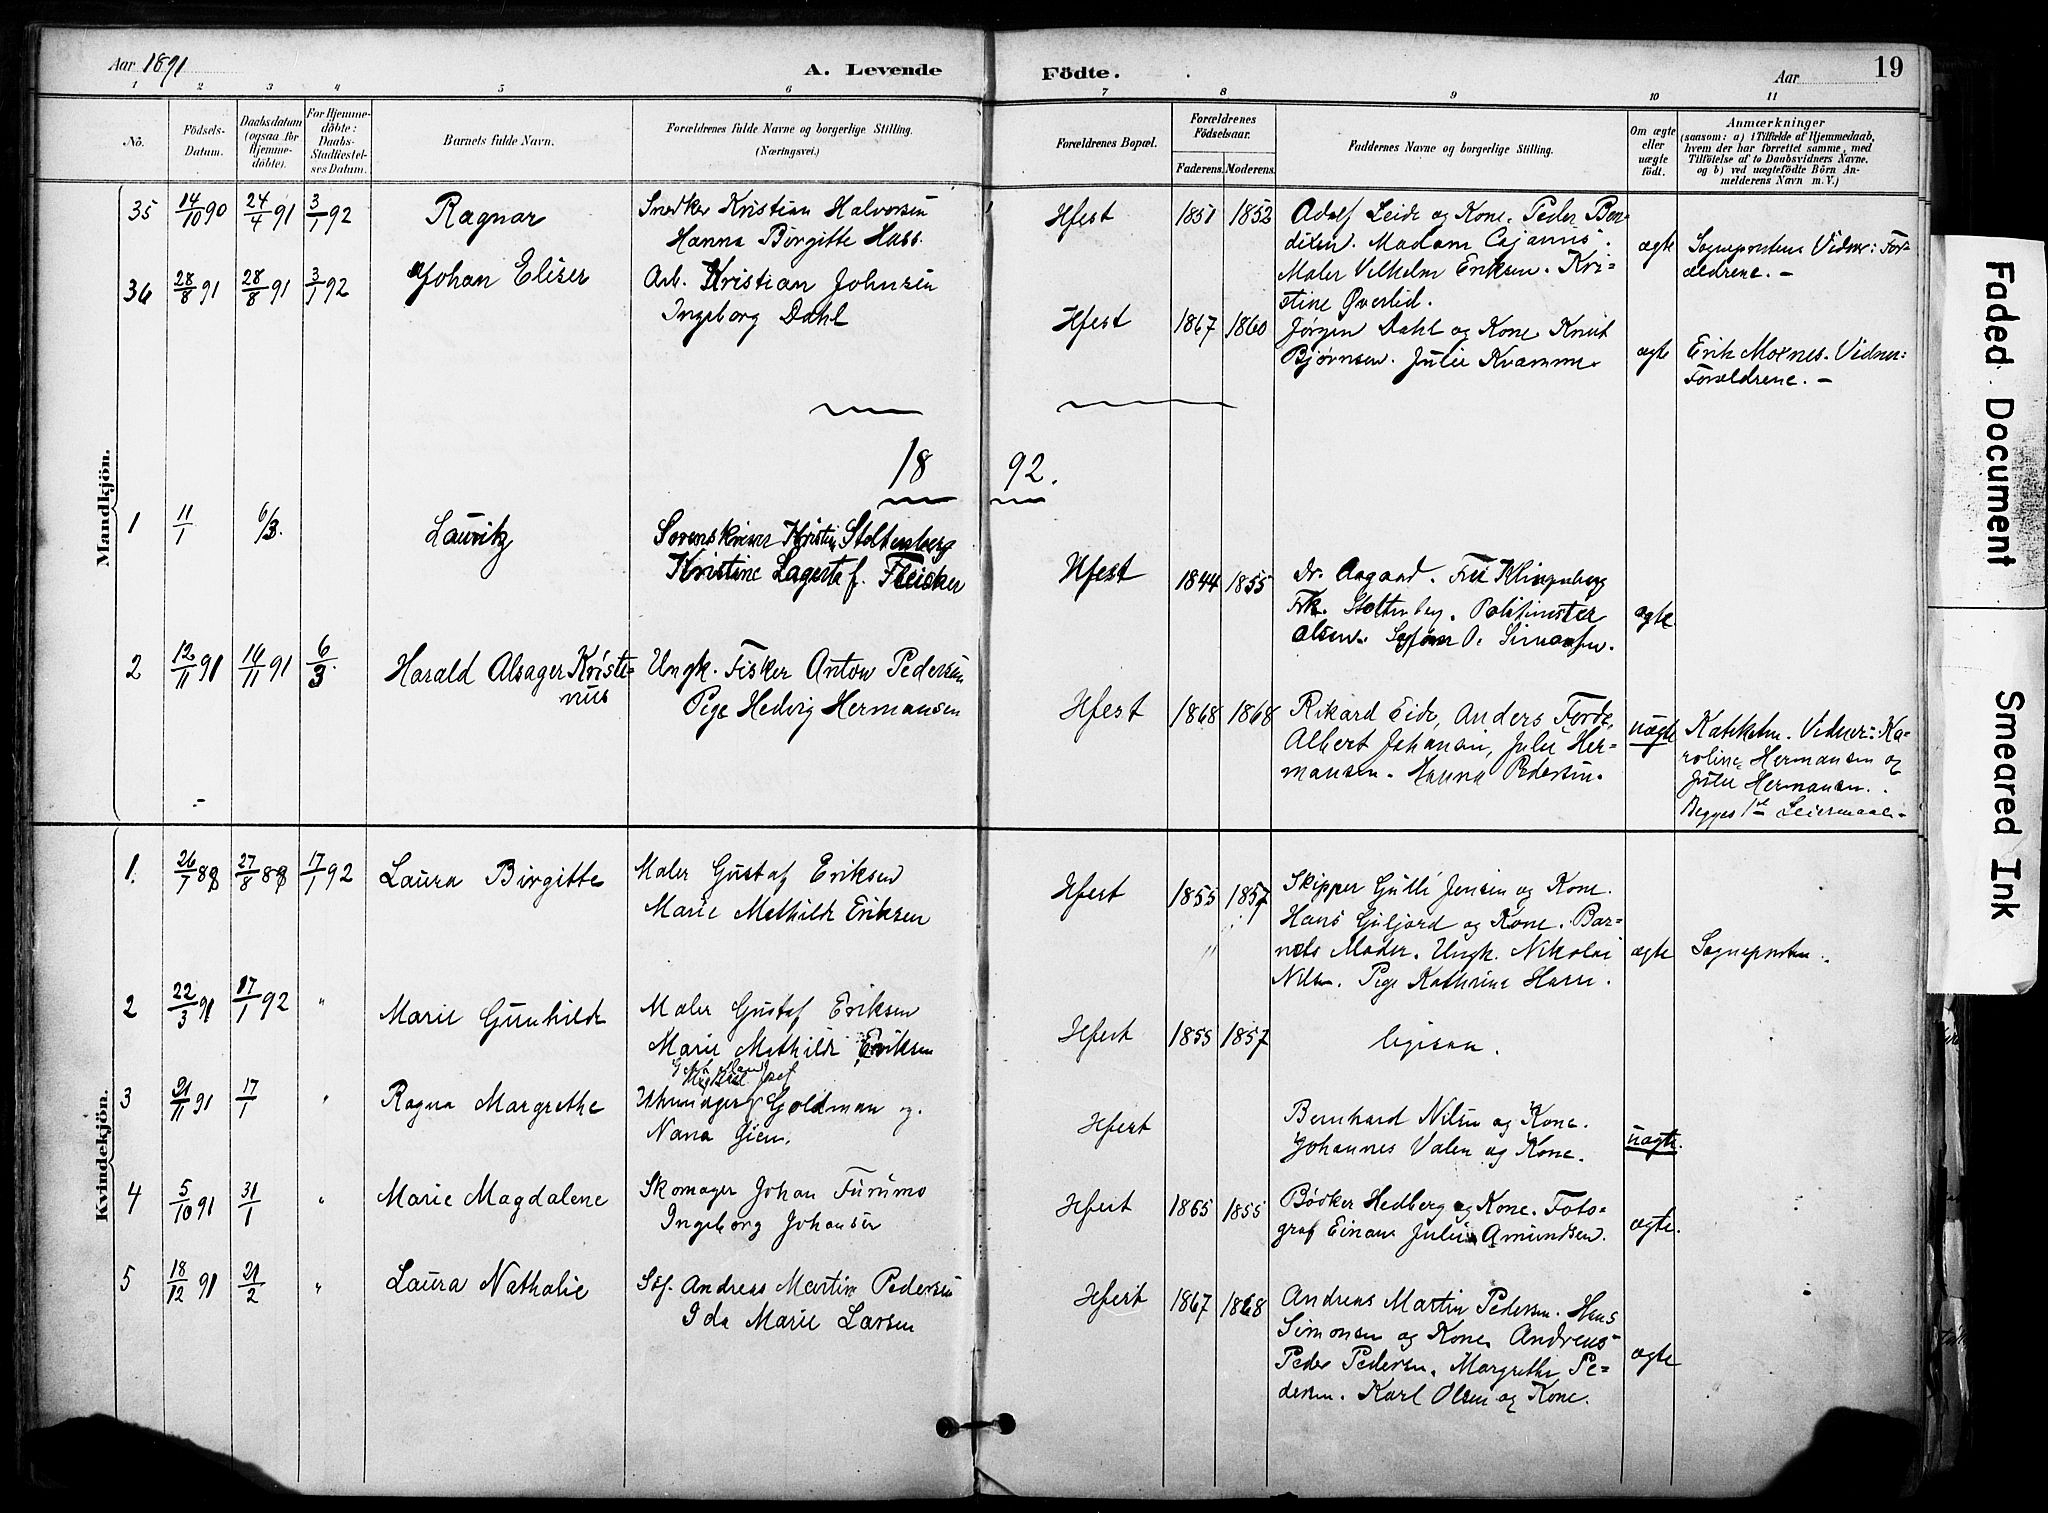 Aar 1891
A. Levende Födte.
Aar 19
1 2 3 4 5 6 7 8 9 10 11
No.
Födsels-Datum.
Daabsdatum (ogsaa for Hjemmedöbte).
For Hjemmedöbte: Daabs-Stadfæstelses Datum.
Barnets fulde Navn.
Forældrenes fulde Navne og borgerlige Stilling.
(Næringsvei.)
Forældrenes Bopæl.
Forældrenes Födselsaar.
Faderens. Moderens.
Faddernes Navne og borgerlige Stilling.
Om ægte eller uægte födt.
Anmærkninger
(saasom: a) i Tilfælde af Hjemmedaab, hvem der har forrettet samme, med Tilföielse af to Daabsvidners Navne, og b) ved uægtefödte Börn Anmelderens Navn m. V.)
Mandkjön.
35 14/10 90 24/4 91 3/1 92 Ragnar
Snedker Kristian Halvorsen
Hanna Birgitte Hass.
Hfest 1851 1852
Adolf Leide og Kone. Peder Ben-
dixen. Madam Cajanus.
Maler Vilhelm Eriksen. Kri-
stine Øverlid.
ægte
Sognepresten Vidner: For-
ældrene. -
36 28/8 91 28/8 91 3/1 92 Johan Eliser
Arb. Kristian Johnsen
Ingeborg Dahl
Hfest 1867 1860
Jørgen Dahl og Kone. Knut
Bjørnsen. Julie Kvamme.
ægte
Erik Moxnes. Vidner:
Forældrene. -
18 92.
1 11/1 6/3. Lauritz
Sorenskriver Kristin Stoltenberg
Kristine Lagerta f. Fleicher
Hfest 1844 1855
Dr. Aagaard. Fru Klingenberg
Frk. Stoltenberg. Politimester
Olsen. O. Simonsen.
ægte
2 12/11 91 16/11 91 6/3. Harald Alsager Kristi-
nus
Ungk. Fisker Anton Pedersen
Pige Hedvig Hermansen
Hfest 1868 1868
Rikard Eide, Anders Førde,
Albert Johansen, Julie Her-
mansen. Hanna Pedersen.
uægte
Kateketen. Vidner: Ka-
roline Hermansen og
Julie Hermansen.
Begges 1st Leiermaal.
Kvindekjön.
1. 26/7 88 27/8 88 17/1 92 Laura Birgitte
Maler Gustaf Eriksen
Marie Mathilde Eriksen
Hfest 1855 1857
Skipper Gulli Jensen og Kone.
Hans Guljord og Kone. Bar-
nets Moder. Ungk. Nikolai
Nilsen. Pige Kathrine Harr.
ægte
Sognepresten.
2 22/3 91 17/1 92 " Marie Gunhilde
Maler Gustaf Eriksen
Marie Mathilde Eriksen
Hfest 1855 1857
ligesaa.
3 21/11 91 17/1 " Ragna Margrethe
Josef
Uhrmager Goldman og
Nana Gien.
Hfest
Bernhard Nilsen og Kone.
Johannes Valen og Kone.
uægte.
4 5/10 91 31/1 " Marie Magdalene
Skomager Johan Furumo
Ingeborg Johansen
Hfest 1865 1855
Bødker Hedberg og Kone. Foto-
graf Einam Julie Amundsen.
ægte.
5 18/12 91 21/2 " Laura Nathalie
Søf. Andreas Martin Pedersen
Ida Marie Larsen
Hfest 1867 1868
Andreas Martin Pedersen. Hans
Simonsen og Kone. Andreas
Peder Pedersen. Margrethe Pe-
dersen. Karl Olsen og Kone.
ægte
Faded Document
Smeared Ink